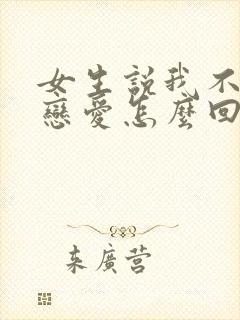 女生説我不
戀愛怎麼回
来廣营